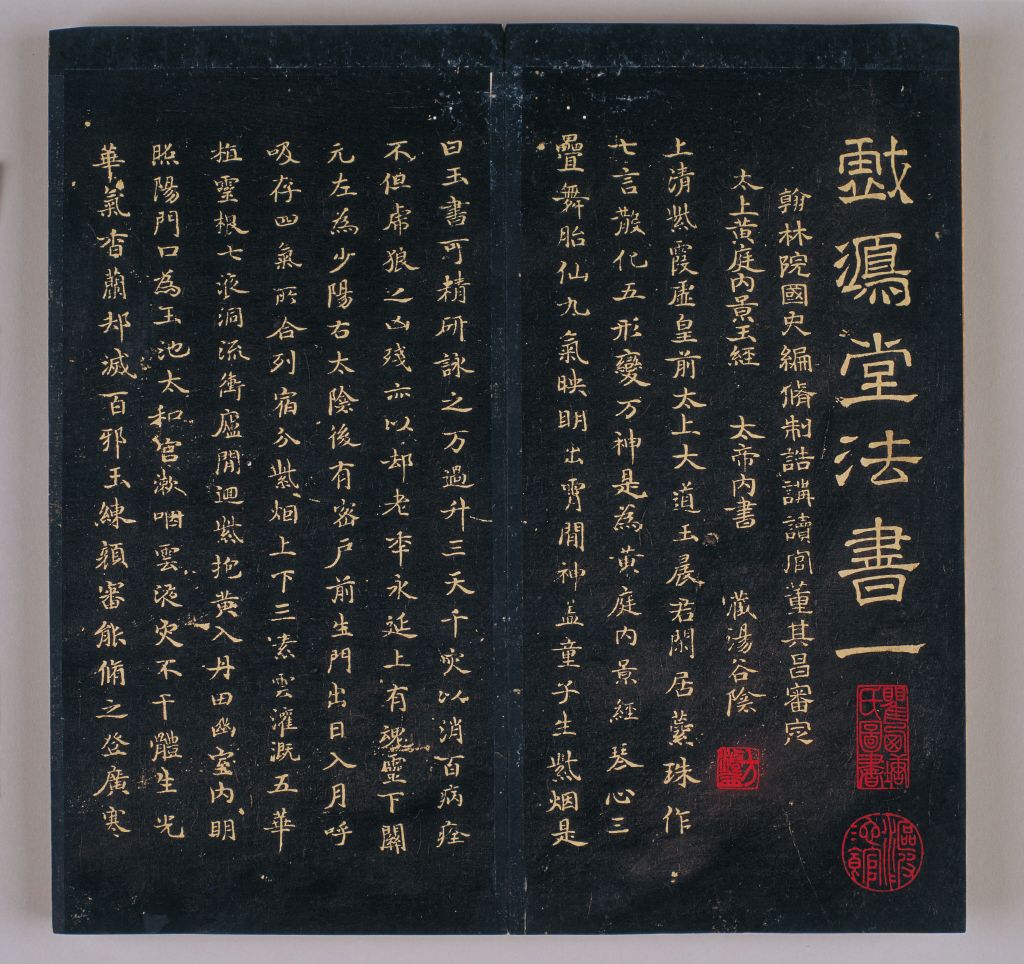 戲鴻堂法書一
翰林院國史編脩制誥講讀官董其昌審定
太上黃庭內景玉經 太帝內書 藏湯谷陰
上清紫霞虛皇前太上大道玉晨君閑居蘂珠作
七言散化五形變万神是為黃庭內景經 琴心三
疊舞胎仙九氣映明出霄間神盖童子生紫烟是
曰玉書可精研詠之万過升三天千灾以消百病痊
不但虎狼之凶殘亦以却老年永延上有魂靈下關
元左為少陽右太陰後有密戶前生門出日入月呼
吸存四氣所合列宿分紫烟上下三素雲灌溉五華
植靈根七液洞流衝廬間迴紫抱黃入丹田幽室內明
照陽門口為玉池太和官漱咽雲液灾不干體生光
華氣香蘭却滅百邪玉練顏審能脩之登廣寒